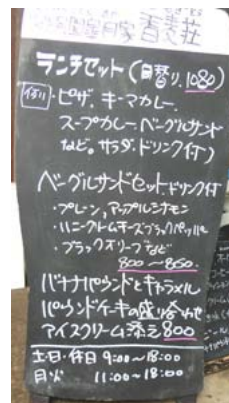 香麦荘
ランチセット(日替り、1080)
例)・ピザ、キーマカレー、
スープカレー、ベーグルサンド
など。サラダ、ドリンク付)
ベーグルサンドセット、ドリンク付
・プレーン、アップルシナモン
・ハニークリームチーズブラックペッパー
・ブラックオリーブなど
800〜850.
バナナパウンドとキャラメル
パウンドケーキの盛り合わせ
アイスクリーム添え800
土・日・休日 9:00〜18:00
月・火 11:00〜18:00